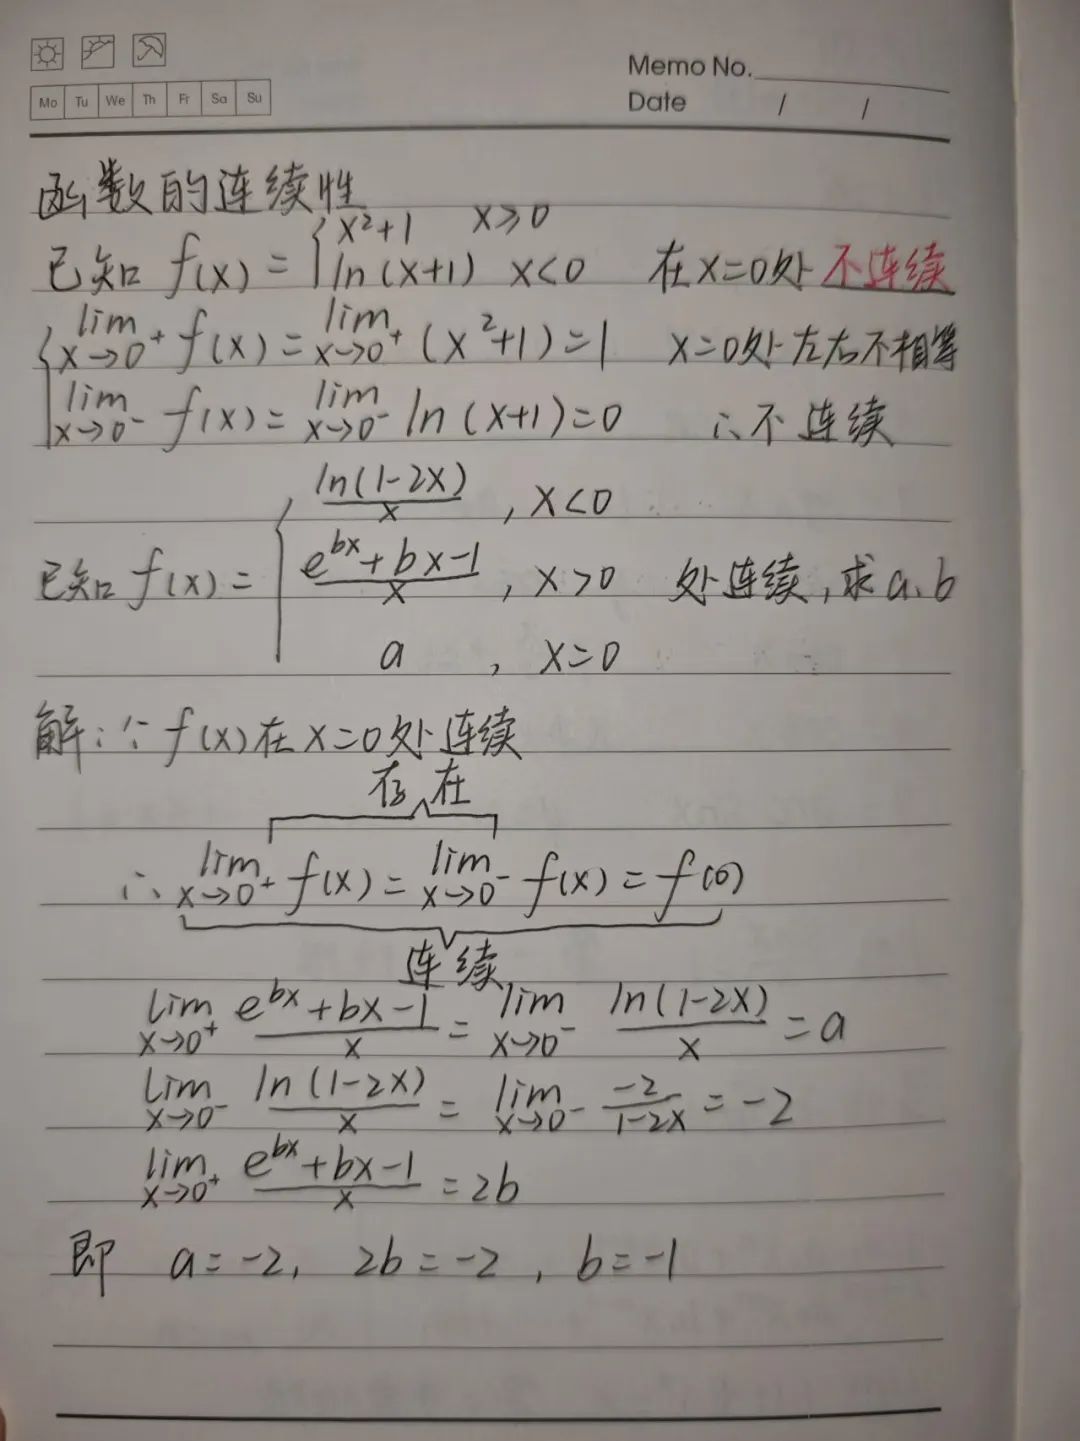 Mo Tu We Th Fr Sa Su
Memo No.
Date / /
函数的连续性
已知 f(x) = { x²+1 x≥0
ln(x+1) x<0 在x=0处不连续
{ lim x→0⁺ f(x) = lim x→0⁺ (x²+1) = 1 x=0处左右不相等
lim x→0⁻ f(x) = lim x→0⁻ ln(x+1) = 0 ∴不连续
ln(1-2x)/x , x<0
已知 f(x) = { (e^{bx}+bx-1)/x , x>0 处连续,求a、b
a , x=0
解:∵f(x)在x=0处连续
存在
∴ lim x→0⁺ f(x) = lim x→0⁻ f(x) = f(0)
连续
lim x→0⁺ (e^{bx}+bx-1)/x = lim x→0⁻ ln(1-2x)/x = a
lim x→0⁻ ln(1-2x)/x = lim x→0⁻ -2/(1-2x) = -2
lim x→0⁺ (e^{bx}+bx-1)/x = 2b
即 a=-2, 2b=-2, b=-1